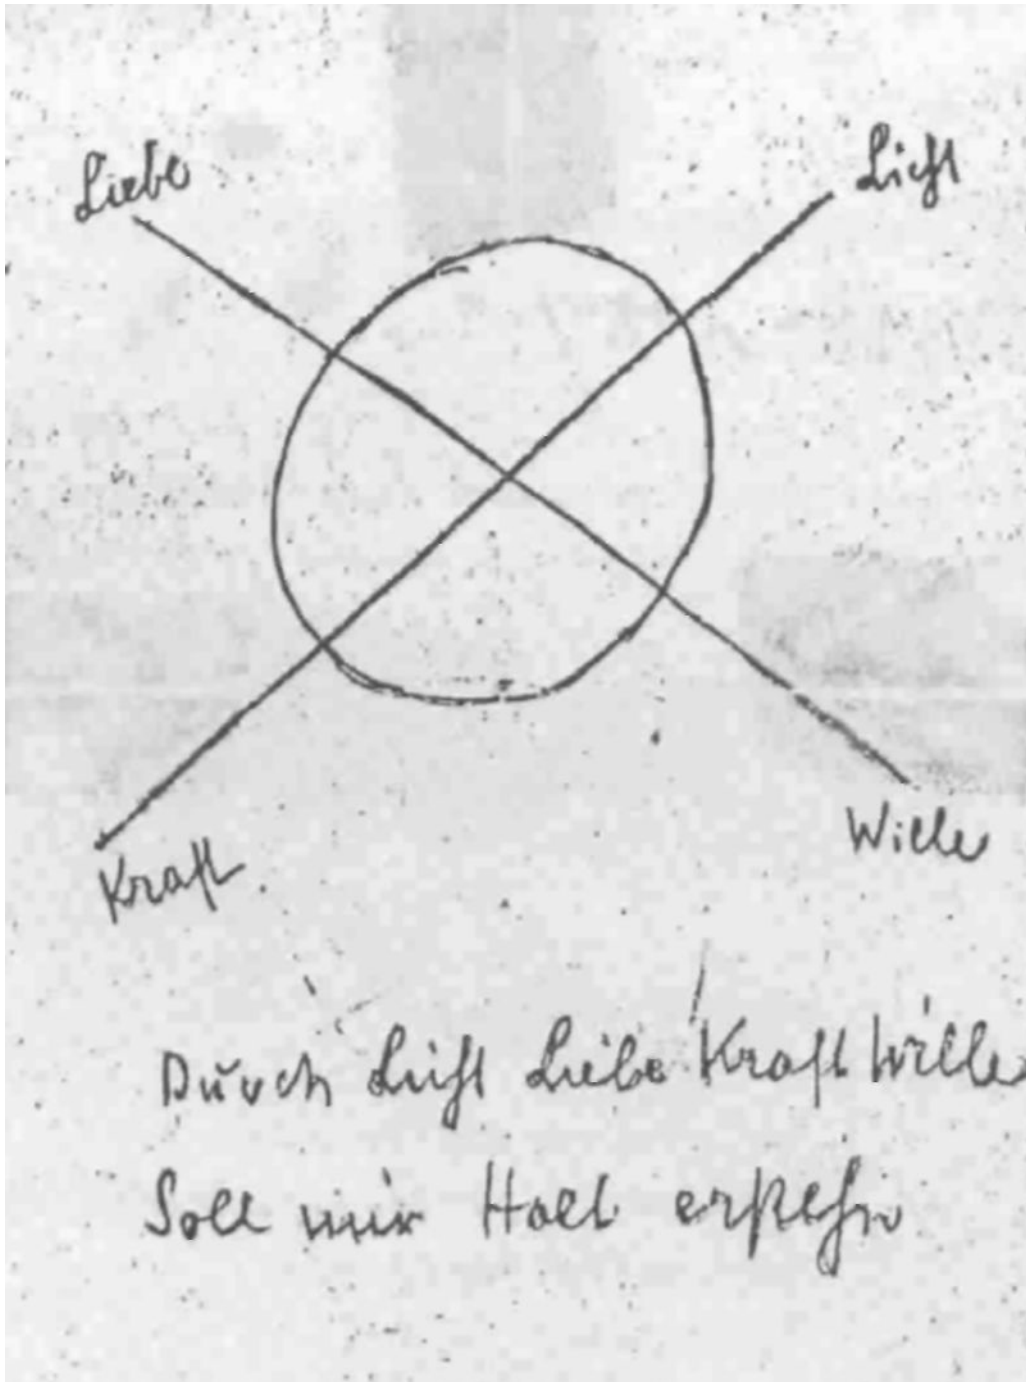 Liebe
Licht
Kraft
Wille
Durch Licht Liebe Kraft Wille
Soll mir Halt erstehn